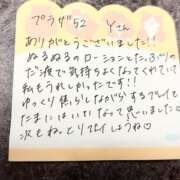 プラザ52 Yさん
ありがとうございました!!
ぬるぬるのローションとたっぷりの
だ液で気持ちよくなってくれていて
私もうれしかったです!!
ゆっくり焦らしながらするプレイも
たまにはいいなって思いました♡
次もね、とり しようね♡